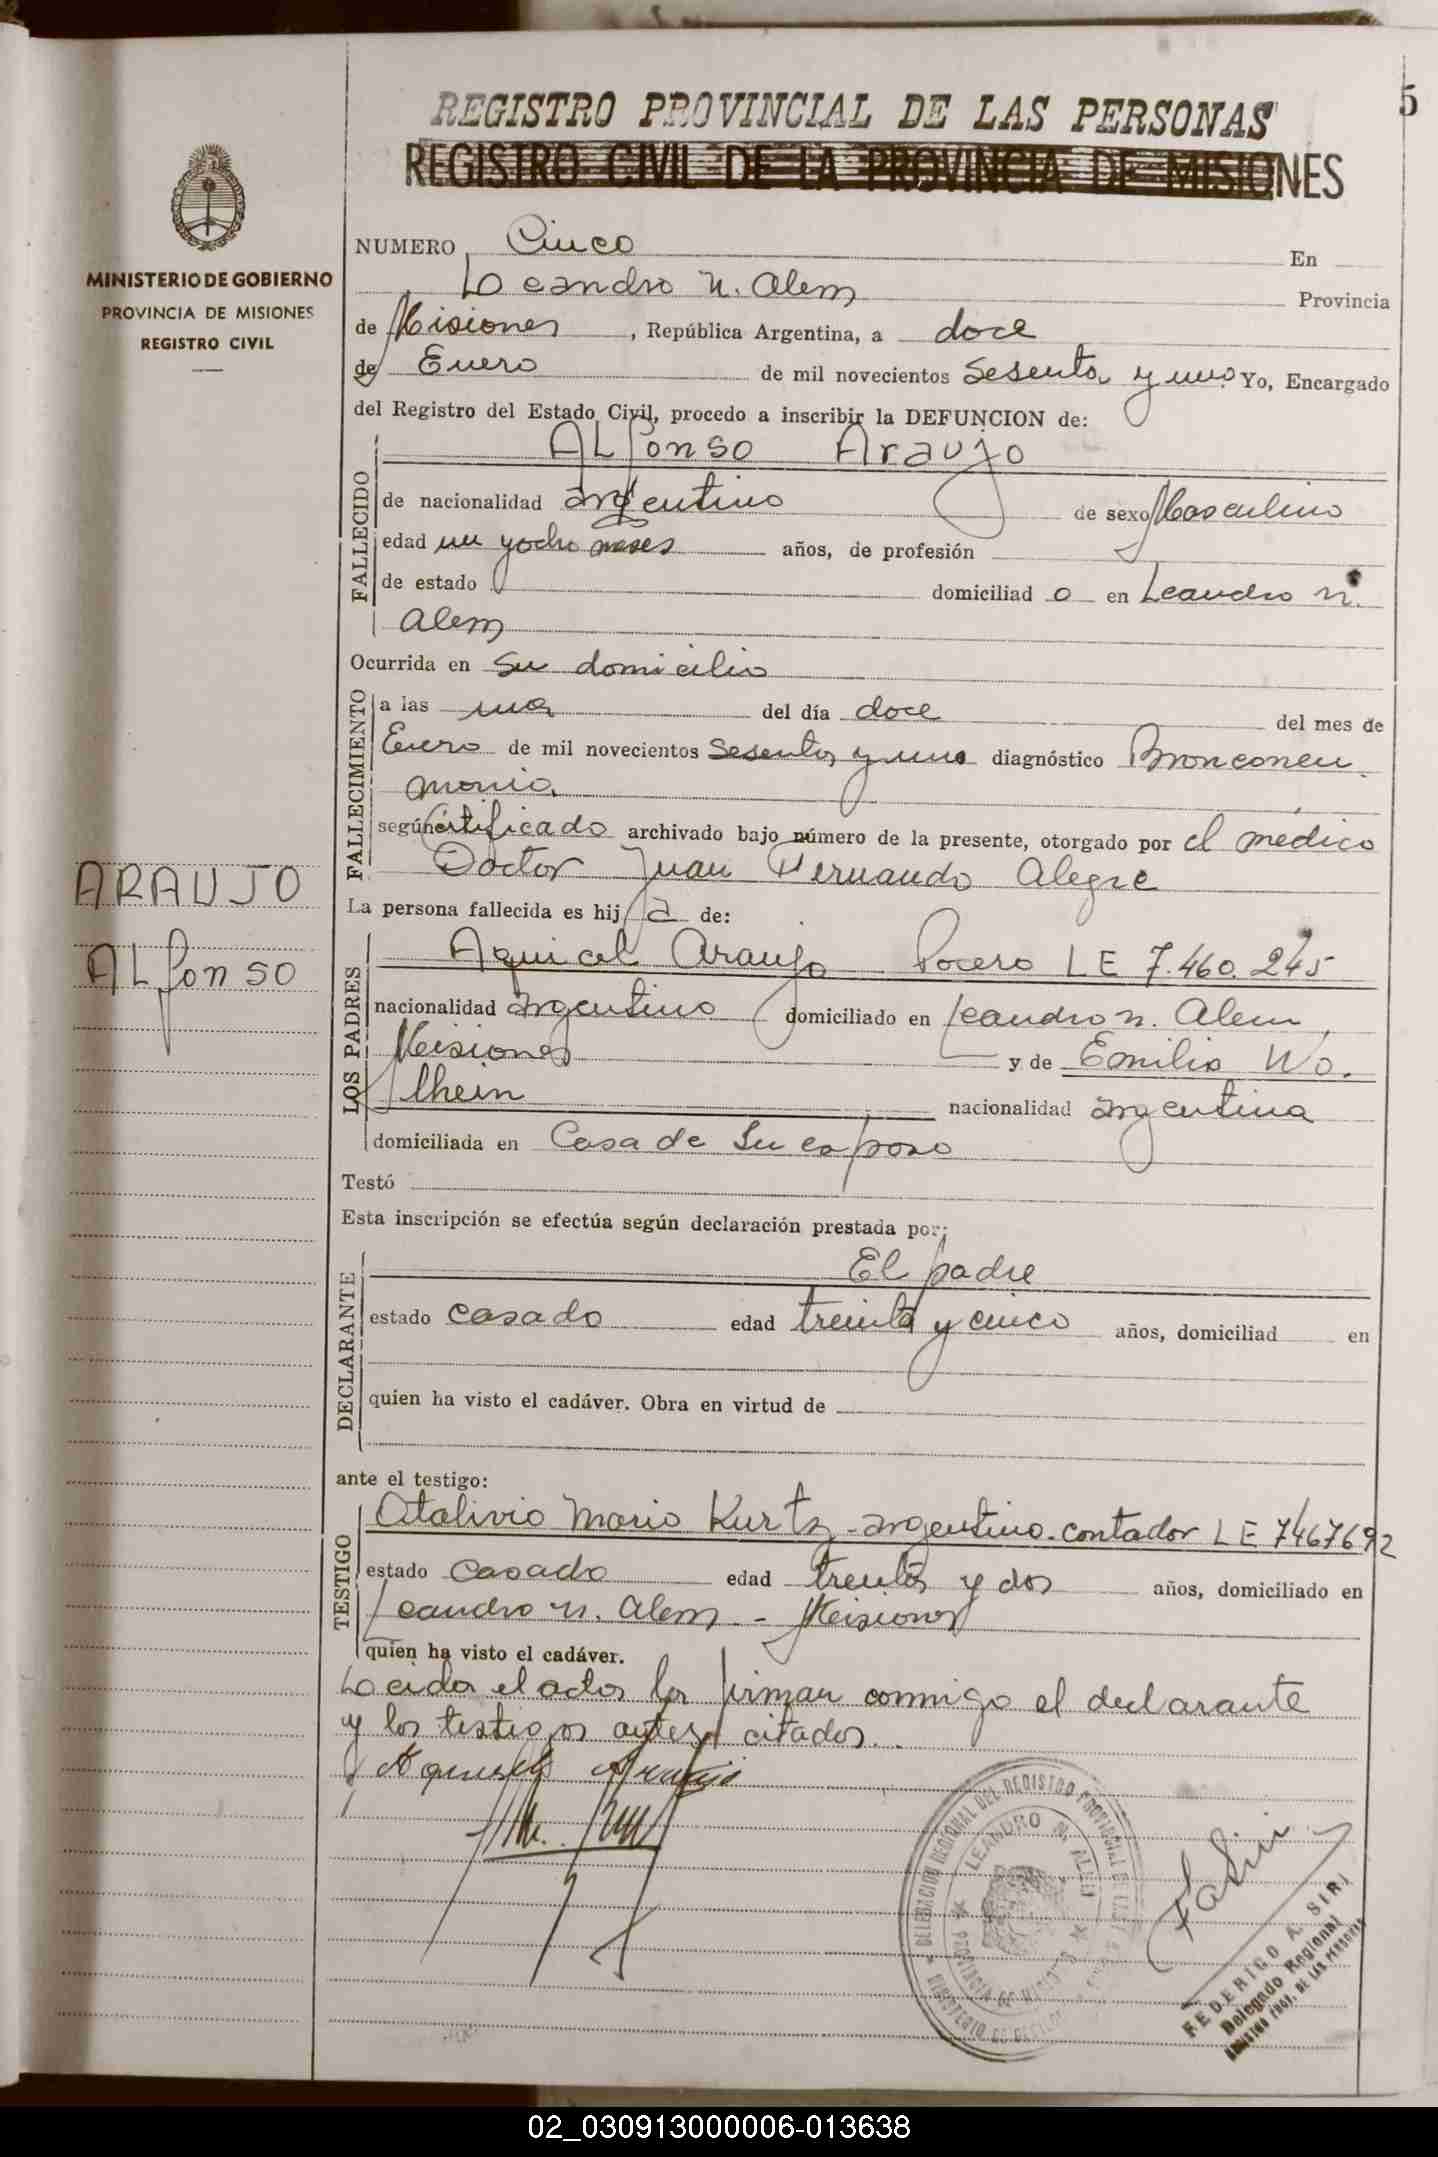 5
REGISTRO PROVINCIAL DE LAS PERSONAS
REGISTRO CIVIL DE LA PROVINCIA DE MISIONES
MINISTERIO DE GOBIERNO
PROVINCIA DE MISIONES
REGISTRO CIVIL
NUMERO Cinco En
Leandro N. Alem Provincia
de Misiones, República Argentina, a doce
de Enero de mil novecientos Sesenta y uno Yo, Encargado
del Registro del Estado Civil, procedo a inscribir la DEFUNCION de:
FALLECIDO
ALfonso Araujo
de nacionalidad argentino de sexo Masculino
edad un y ocho meses años, de profesión
de estado domiciliad o en Leandro N.
Alem
Ocurrida en su domicilio
FALLECIMIENTO
a las una del día doce del mes de
Enero de mil novecientos Sesenta y uno diagnóstico Bronconeu
monia
según Certificado archivado bajo número de la presente, otorgado por el médico
Doctor Juan Fernando Alegre
ARAUJO
ALfonso
La persona fallecida es hij a de:
LOS PADRES
Araujo LE 7.460.245
nacionalidad argentino domiciliado en Leandro N. Alem
Misiones y de Emilia Wo.
lhein nacionalidad argentina
domiciliada en Casa de Su esposo
Testó
Esta inscripción se efectúa según declaración prestada por:
DECLARANTE
El padre
estado casado edad treinta y cinco años, domiciliad en
quien ha visto el cadáver. Obra en virtud de
ante el testigo:
TESTIGO
Atalivio Mario Kurtz - argentino - contador LE 7467692
estado Casado edad treinta y dos años, domiciliado en
Leandro N. Alem - Misiones
quien ha visto el cadáver.
Leida el acta la firman conmigo el declarante
y los testigos antes citados.
Araujo
DELEGACION REGIONAL DEL REGISTRO PROVINCIAL DE LAS
LEANDRO N. ALEM
PROVINCIA DE MISIONES
FEDERICO A. SIRI
Delegado Regional
REGISTRO PROV. DE LAS PERSONAS
02_030913000006-013638